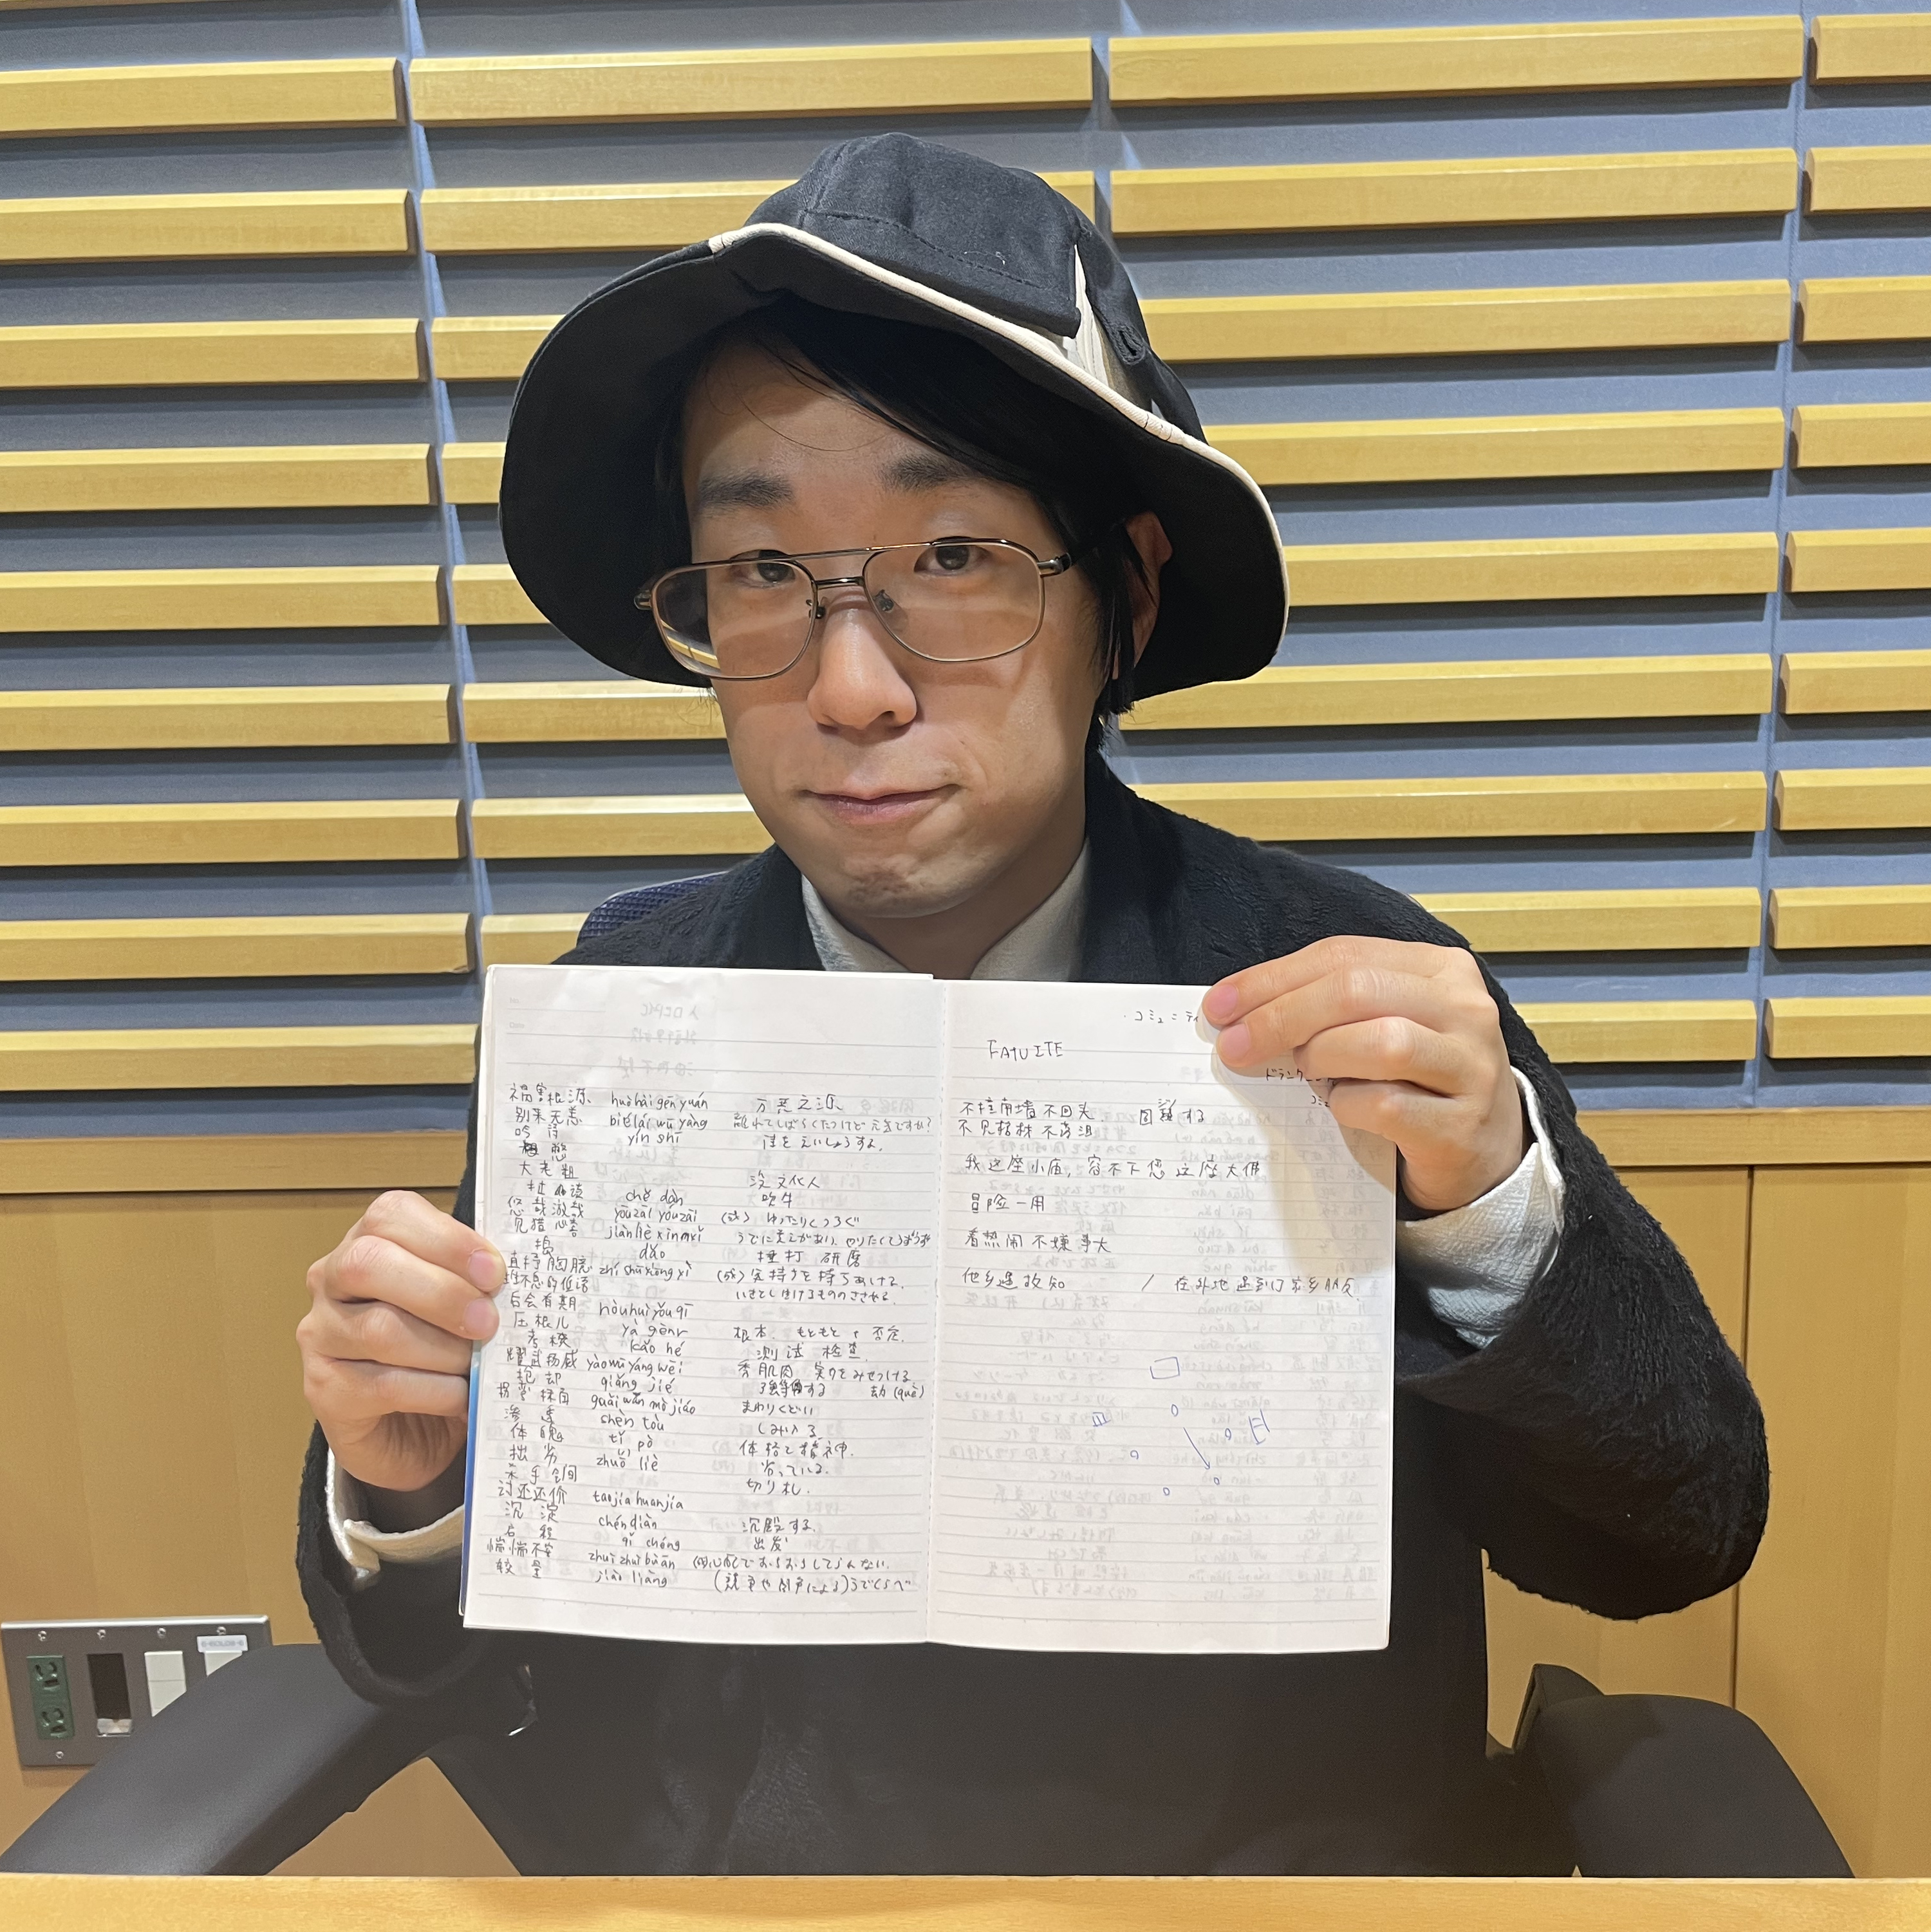 祸害根源 huò hài gēn yuán 万恶之源
别来无恙 bié lái wú yàng 離れてしばらくたつけど元気ですか?
吟诗 yín shī 詩をえいしょうする。
憋
大老粗 没文化人
扯淡 chě dàn 吹牛
悠哉游哉 yōuzāi yóuzāi (成) ゆったりくつろぐ
见猎心喜 jiàn liè xīn xǐ うでに覚えがあり、やりたくて
捣 dǎo 捶打 研磨
直抒胸臆 zhí shū xiōng yì (成) 気持ちを
后会有期 hòu huì yǒu qī
压根儿 yà gēnr 根本、もともと 否定、
考核 kǎo hé 测试 检查
耀武扬威 yào wǔ yáng wēi 秀肌肉 実力をみせつける
抢劫 qiǎng jié 强奪する 劫
拐弯抹角 guǎi wān mò jiǎo まわりくどい
渗透 shèn tòu しみ入る
体魄 tǐ pò 体格と精神、
拙劣 zhuō liè 劣っている。
杀手锏 切り札、
讨还还价 taojia huanjia
沉淀 chén diàn 沉殿する
启程 qǐ chéng 出发
惴惴不安 zhuì zhuì bù ān
较量 jiào liàng (競争や闘争による)うでくらべ
・コミュニティ
FATUITE
ドランク
コミュ
不撞南墙不回头、 固執する
不见棺材不落泪
我这座小庙, 容不下您这座大佛
冒险一用
看热闹不嫌事大
他乡遇故知 / 在外地遇到了家乡